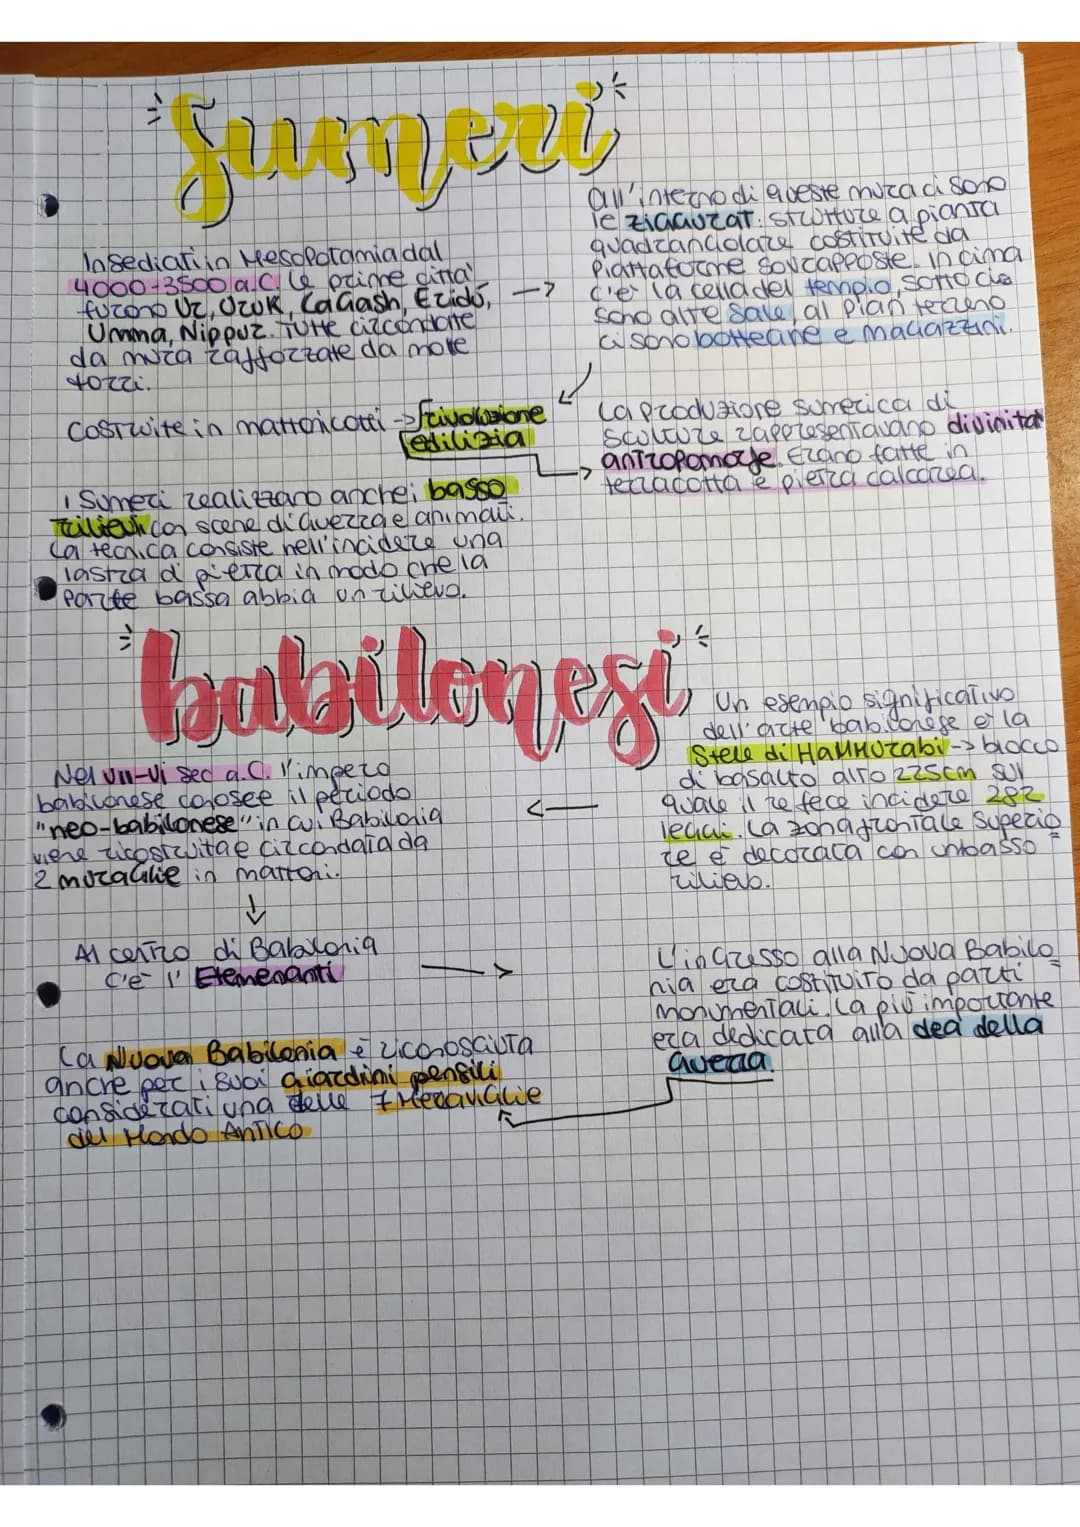 Sumeri
Insediati in Mesopotamia dal
4000-3500 a.C. le prime città
furono Ur, Uruk, Lagash, Eridú,
Umma, Nippur. Tutte circondate
da mura rafforzate da molte
torri.
all'interno di queste mura ci sono
le ziggurat: strutture a pianta
quadrangolare costituite da
piattaforme sovrapposte. In cima
c'è la cella del tempio, sotto ci
sono altre sale, al pian terreno
ci sono botteghe e magazzini.
Costruite in mattoni cotti -> rivoluzione
edilizia
La produzione sumerica di
sculture rappresentavano divinità
antropomorfe. Erano fatte in
terracotta e pietra calcarea.
i Sumeri realizzano anche i basso
rilievi con scene di guerra e animali.
La tecnica consiste nell'incidere una
lastra di pietra in modo che la
parte bassa abbia un rilievo.
babilonesi
Un esempio significativo
dell'arte babilonese è la
Stele di Hammurabi -> blocco
di basalto alto 225cm sul
quale il re fece incidere 282
leggi. La zona frontale superio
re è decorata con un basso
rilievo.
Nel VII-VI sec a.C. l'impero
babilonese conosce il periodo
"neo-babilonese" in cui Babilonia
viene ricostruita e circondata da
2 muraglie in mattoni.
Al centro di Babilonia
c'è l' Etemenanti
L'ingresso alla Nuova Babilo
nia era costituito da parti
monumentali. La più importante
era dedicata alla dea della
guerra.
La Nuova Babilonia è riconosciuta
anche per i suoi giardini pensili
considerati una delle 7 Meraviglie
del Mondo Antico